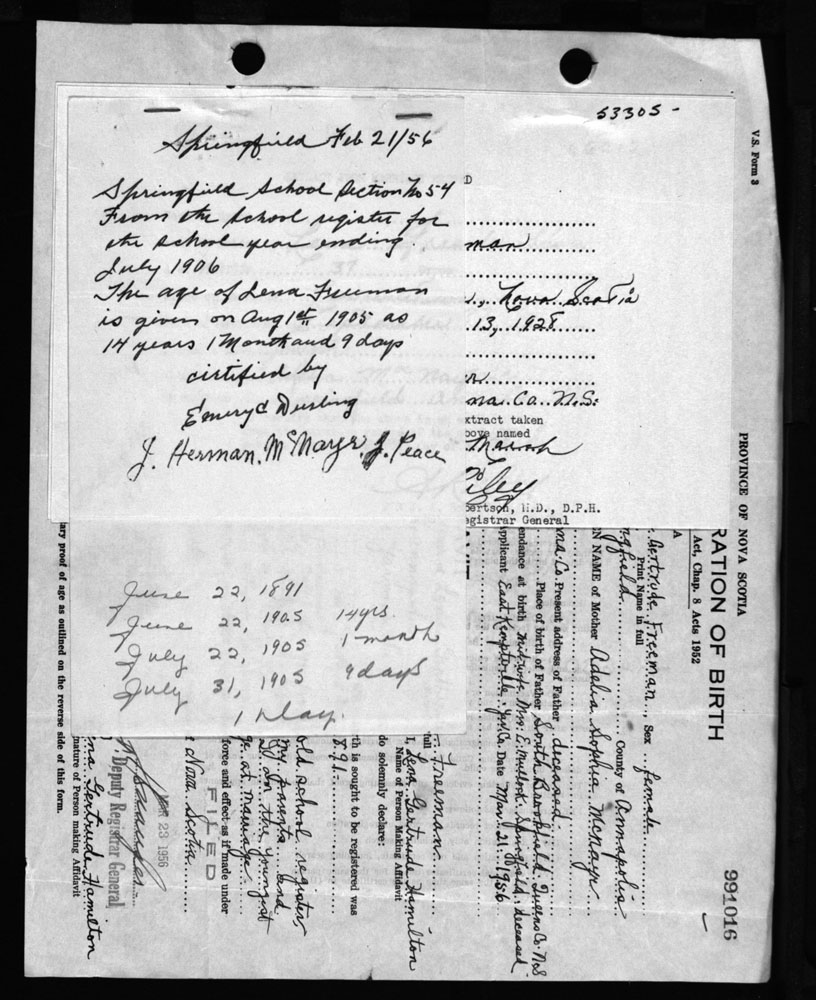 53305 -
Springfield Feb 21/56
Springfield School Section No 54
From the School register for
the School year ending
July 1906
The age of Lena Freeman
is given on Aug 1st 1905 as
14 years 1 Month and 9 days
certified by
J. Herman. McNayr. J. Peace
D
man
Nova Scotia
13, 1928
na. Co. N.S.
xtract taken
bove named
bertson, M.D., D.P.H.
egistrar General
June 22, 1891
June 22, 1905 14 yrs.
July 22, 1905 1 month
July 31, 1905 9 days
1 day.
V.S. Form 3
PROVINCE OF NOVA SCOTIA
RATION OF BIRTH
Act, Chap. 8 Acts 1952
A
991016
Gertrude Freeman Sex female
Print Name in full
ngfield County of Annapolis
N NAME of Mother Adelia Sophia McNayr
na. Co. Present address of Father deceased.
Place of birth of Father South Brookfield Queens Co. N.S
endance at birth midwife Mrs. E. Mullock, Springfield. deceased
pplicant East Kemptville, Yar. Co. Date Mar. 21. 1956
full Freeman.
I, Lena Gertrude Hamilton
Name of Person Making Affidavit
do solemnly declare:
rth is sought to be registered was
891.
old school register
my parents and
I am the youngest
ge at marriage
force and effect as if made under
FILED
Nova Scotia
23 1956
Deputy Registrar General
na Gertrude Hamilton
nature of Person making Affidavit
ary proof of age as outlined on the reverse side of this form.